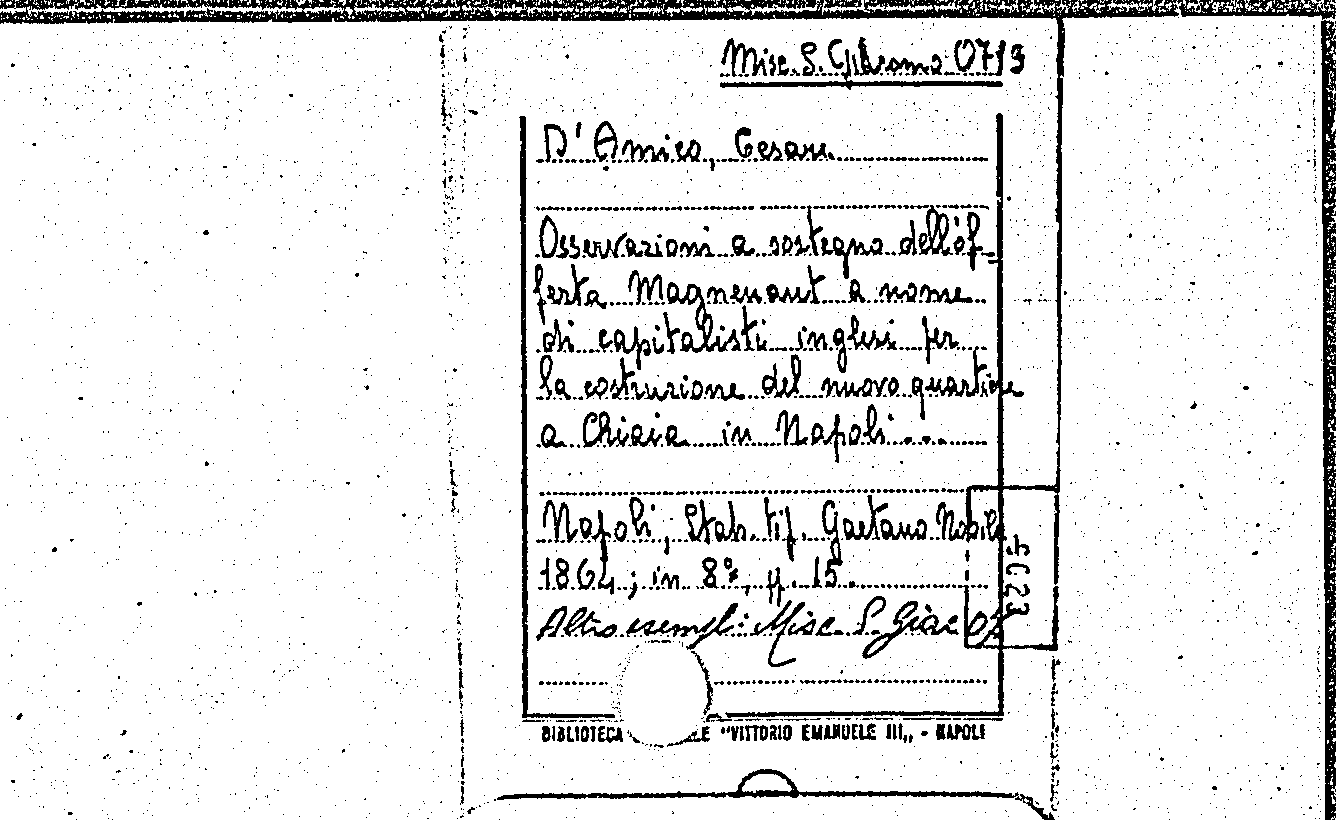 Misc. S. Giacomo 0713
D' Amico, Cesare
Osservazioni a sostegno dell'of=
ferta Magnenaut a nome
di capitalisti inglesi per
la costruzione del nuovo quartiere
a Chiaia in Napoli...
Napoli, Stab. tip. Gaetano Nobile
1864; in 8°, pp. 15.
Altro esempl: Misc. S. Giac
BIBLIOTECA "VITTORIO EMANUELE III„ - NAPOLI